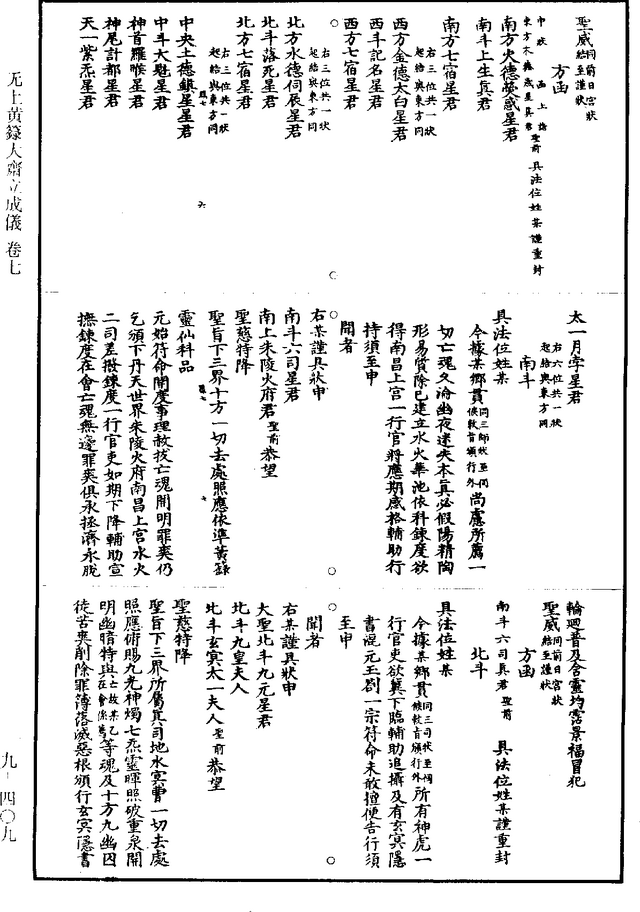 无上黃籙大齋立成儀 卷七
九－四〇九
聖威同前日宮狀始至謹狀
方函
中厥 函上詣
東方木德歲星真君聖前 具法位姓某謹重封
南方火德熒惑星君
南斗上生真君
南方七宿星君
右三位共一狀
起結與東方同
西方金德太白星君
西斗記名星君
西方七宿星君
右三位共一狀
起結與東方同
北方水德伺辰星君
北斗落死星君
北方七宿星君
右三位共一狀
起結與東方同
中央土德鎮星星君
中斗大魁星君
神首羅睺星君
神尾計都星君
天一紫炁星君
太一月孛星君
右六位共一狀
起結與東方同
南斗
具法位姓某
今據某鄉貫同三師狀至同候敕旨頒行外尚慮所薦一
切亡魂久淪幽夜迷失本真必假陽精陶
形易質除已建立水火華池依科鍊度欲
得南昌上宮一行官將應期感格輔助行
持須至申
聞者
右某謹具狀申
南斗六司星君
南上朱陵火府君聖前恭望
聖慈特降
聖旨下三界十方一切去處照應依準黃籙
靈仙科品
元始符命開度事理赦拔亡魂開明罪爽仍
乞頒下丹天世界朱陵火府南昌上宮水火
二司差撥鍊度一行官吏如期下降輔助宣
撫鍊度在會亡魂無邊罪爽俱承拯濟永脫
輪迴普及含靈均霑景福冒犯
聖威同前日宮狀始至謹狀
方函
南斗六司真君聖前 具法位姓某謹重封
北斗
具法位姓某
今據某鄉貫同三司狀至同候敕旨頒行外所有神虎一
行官吏欲冀下臨輔助追攝及有玄冥隱
書混元玉劄一宗符命未敢擅便告行須
至申
聞者
右某謹具狀申
大聖北斗九元星君
北斗九皇夫人
北斗玄冥太一夫人聖前恭望
聖慈特降
聖旨下三界所屬真司地水冥曹一切去處
照應術賜九光神燭七炁靈暉照破重泉開
明幽暗特與亡故某乙在會係薦等魂及十方九幽囚
徒苦爽削除罪簿落滅惡根頒行玄冥隱書